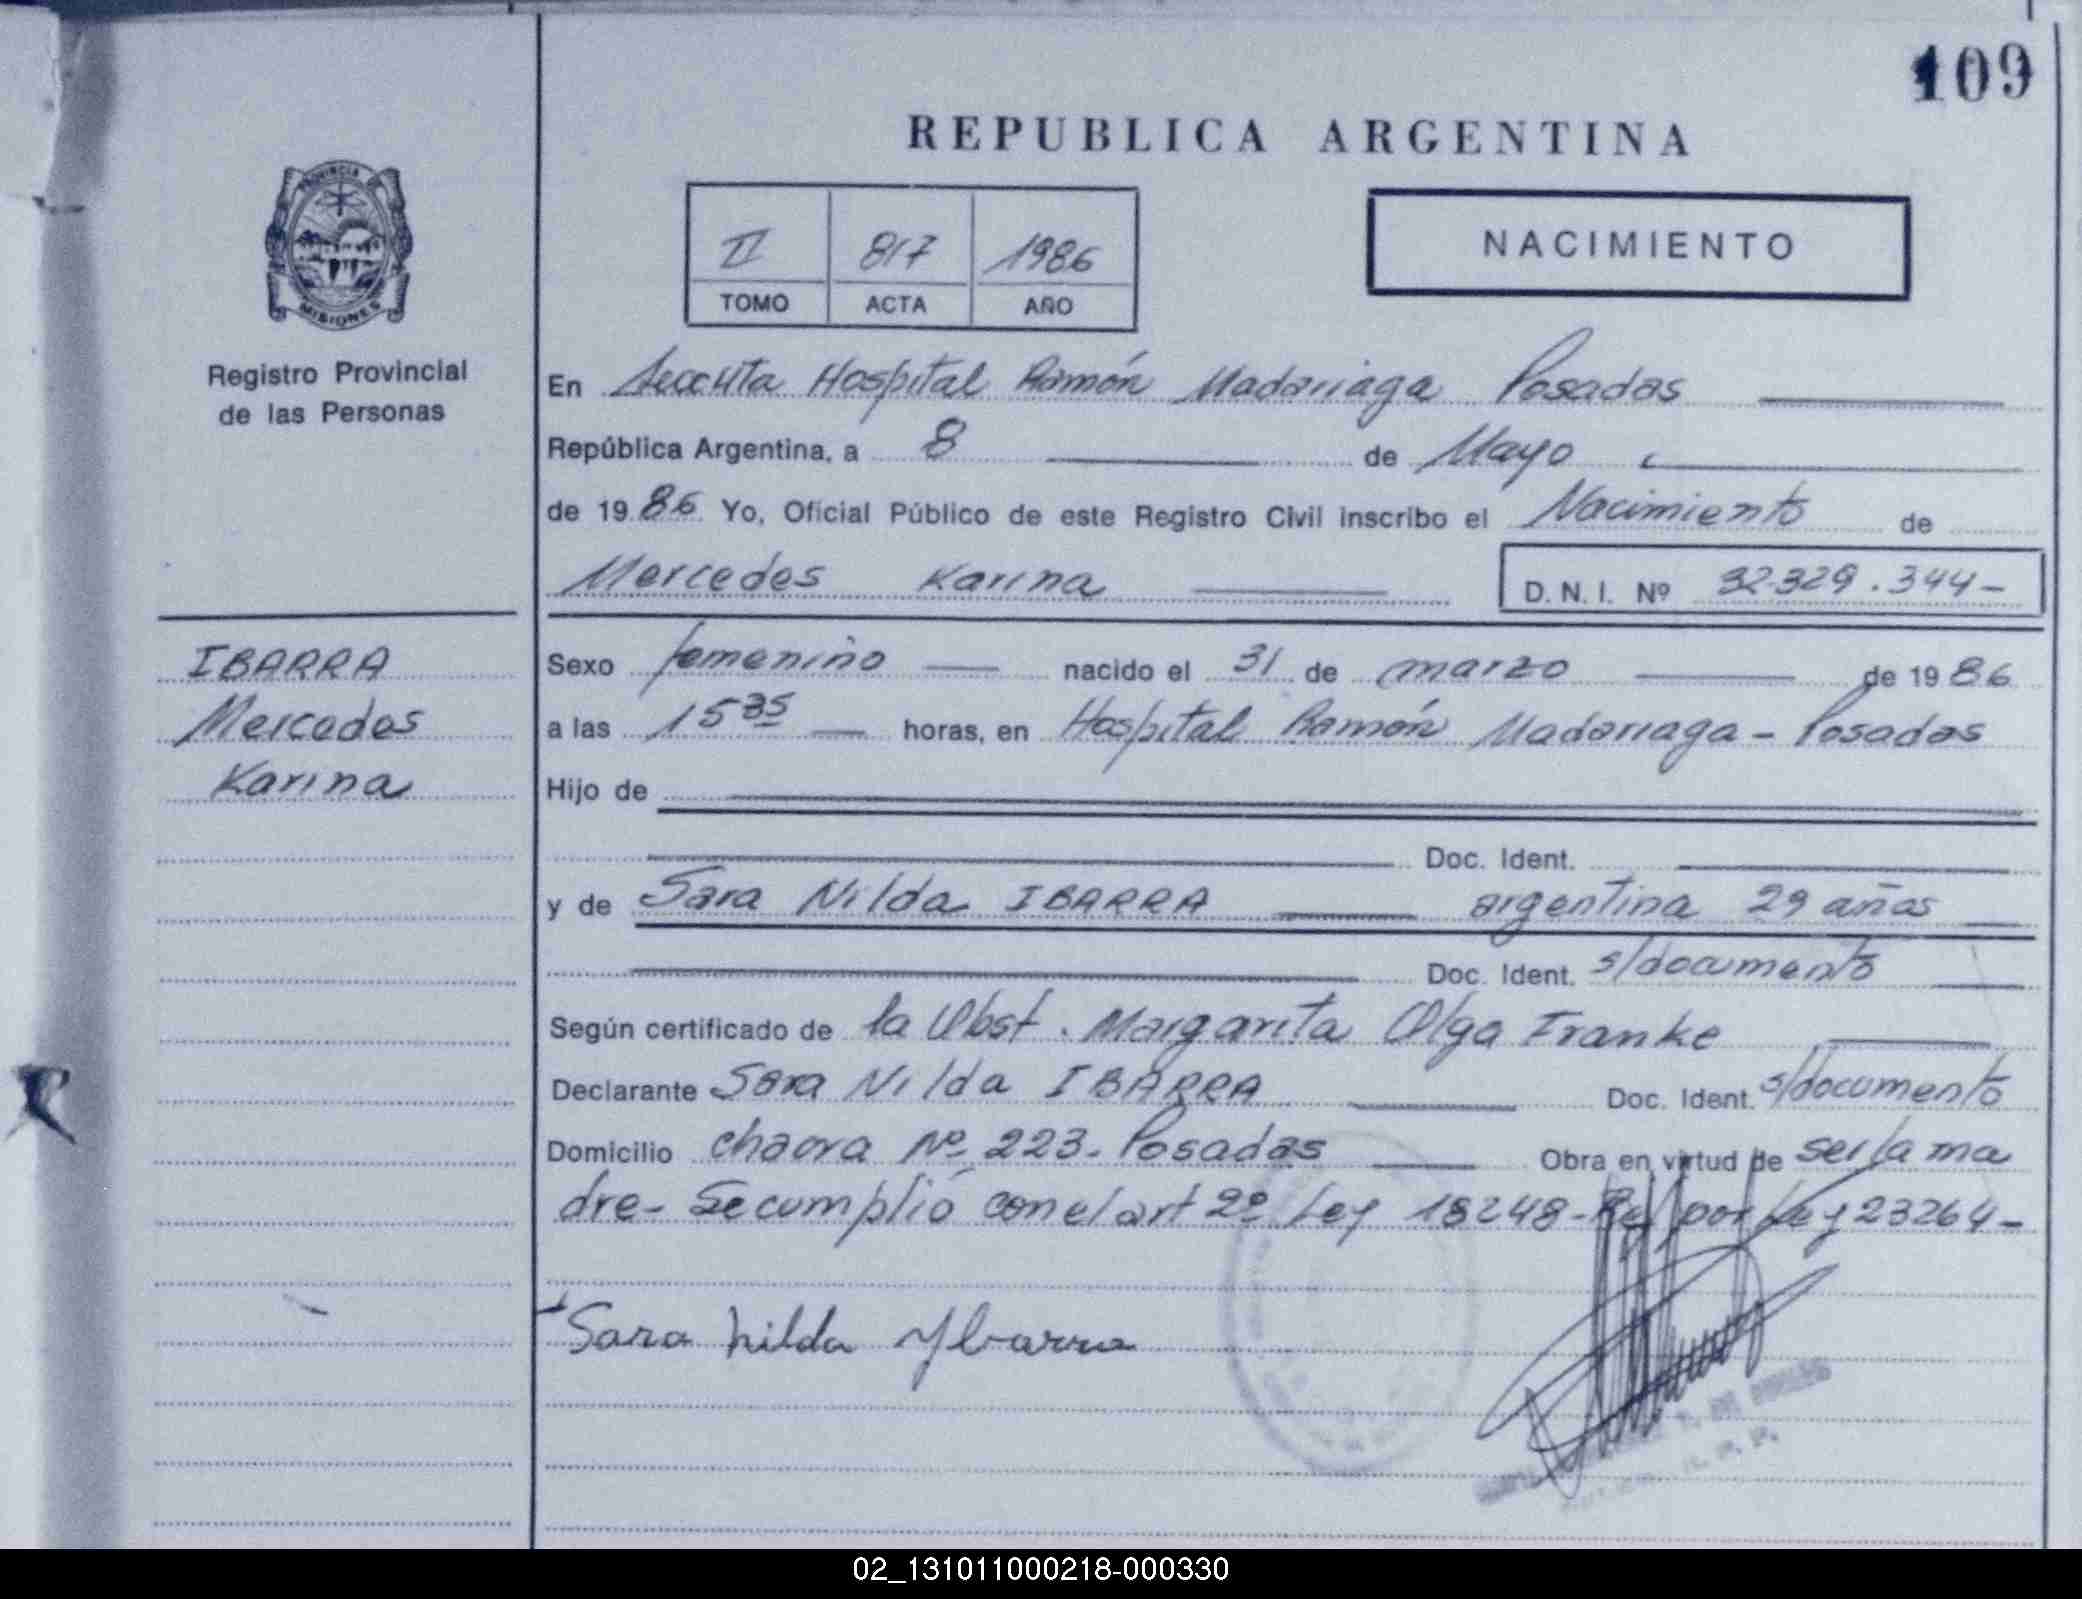 109
REPUBLICA ARGENTINA
PROVINCIA DE
MISIONES
II 817 1986
TOMO ACTA AÑO
NACIMIENTO
Registro Provincial
de las Personas
En Hospital Ramón Madariaga Posadas
República Argentina, a 8 de Mayo
de 1986 Yo, Oficial Público de este Registro Civil inscribo el Nacimiento de
Mercedes Karina D. N. I. Nº 32.329.344-
IBARRA
Mercedes
Karina
Sexo femenino nacido el 31 de marzo de 1986
a las 15 35 horas, en Hospital Ramón Madariaga - Posadas
Hijo de
Doc. Ident.
y de Sara Nilda IBARRA argentina 29 años
Doc. Ident. s/documento
Según certificado de la Obst. Margarita Olga Franke
Declarante Sara Nilda IBARRA Doc. Ident. s/documento
Domicilio chacra Nº 223- Posadas Obra en virtud de ser la ma
dre- Se cumplió con el art 2º Ley 18248- por Ley 23264-
Sara nilda Ybarra
02_131011000218-000330